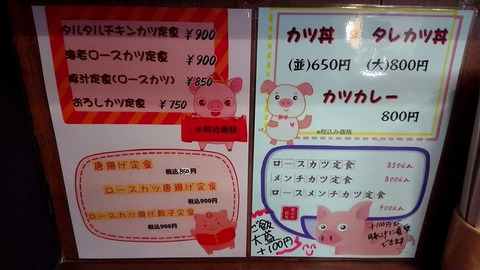 タルタルチキンカツ定食 ¥900
海老ロースカツ定食 ¥900
豚汁定食(ロースカツ) ¥850
おろしカツ定食 ¥750
※税込価格
唐揚げ定食 税込850円
ロースカツ唐揚げ定食
税込900円
ロースカツ揚げ餃子定食
税込900円
カツ丼 タレカツ丼
(並)650円 (大)800円
カツカレー
800円
※税込み価格
ロースカツ定食 850えん
メンチカツ定食 800えん
ロースメンチカツ定食
900えん
ご飯
大盛
+100円
+100円で
豚汁に変更
できます